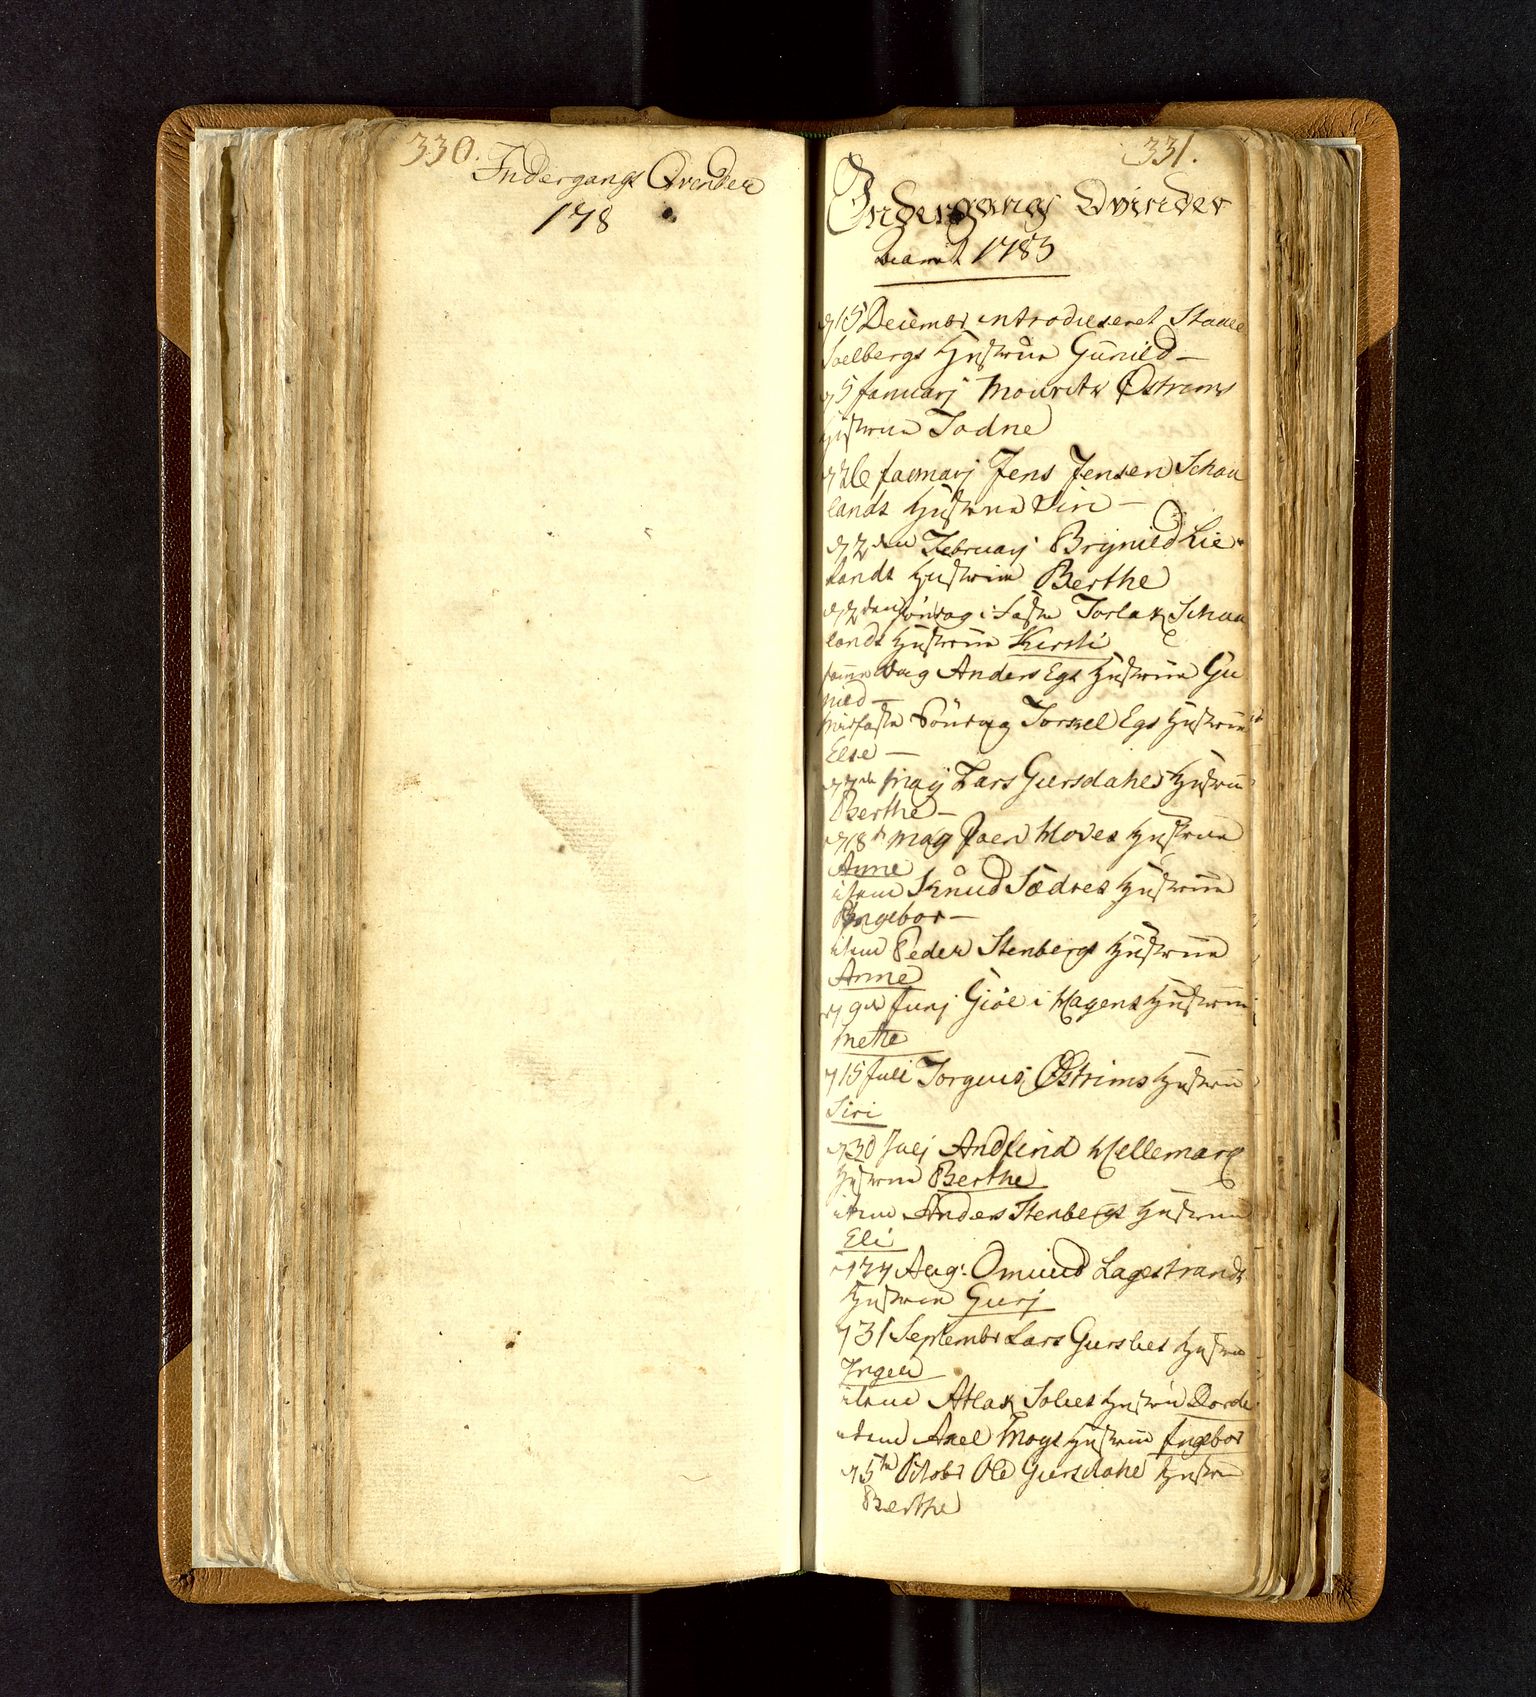 330.
Indergangs Qvinder
178
331.
Indergangs Qvinder
1783
15 Decembr introduceret Staale
Soelbergs Hustrue Gunild –
5 Januarj Mouritz Østrems
Hustrue Todne
26 Januarj Jens Jensen Schau
lands Hustrue Siri –
2den Februarj Brynild Lie-
lands Hustrue Berthe
2den Søndag i Faste Torlak Schau
lands Hustrue Kirsti
samme Dag Anders Egs Hustrue Gu
nild –
Midfaste Søndag Torkel Egs Hustrue
Else –
Maij Lars Giersdahls Hustrue
Berthe –
18 Maij Joen Moves Hustrue
Anne
item Knud Sædres Hustrue
Ingebor –
item Peder Stenbergs Hustrue
Anne
9de Junj Giöe i Hagens Hustrue
Mette
15 Juli Torgius Østrims Hustrue
Siri
30 Julj Andfind Mellemarq
Hustrue Berthe
item Anders Stenbergs Hustrue
Eli
Aug: Omund Lagestrands
Hustrue Gurj
31 Septembr Lars Gurslies Hustrue
Ingeb
item Atlak Solies Hustrue Dorde
item Axel Moys Hustrue Ingebor
5te Octobr Ole Giersdahl Hustrue
Berthe